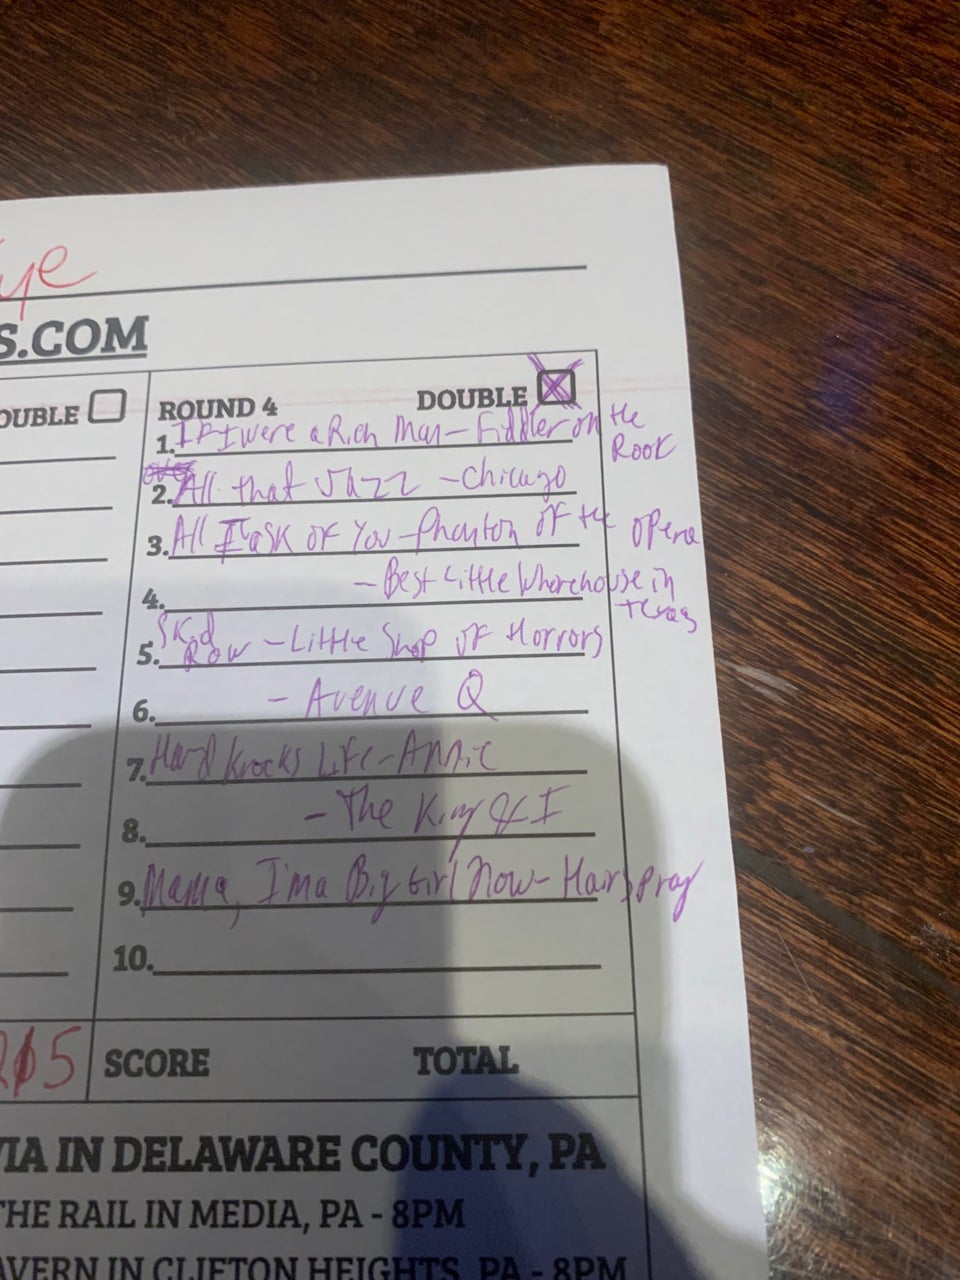 ye
S.COM
OUBLE
ROUND 4 DOUBLE
1. If I were a Rich Man - Fiddler on the Roof
2. All that Jazz - Chicago
3. All I ask of You - Phantom of the Opera
4. - Best Little Whorehouse in Texas
5. Skid Row - Little Shop of Horrors
6. - Avenue Q
7. Hard Knocks Life - Annie
8. - The King & I
9. Mama, I'm a Big Girl Now - Hairspray
10.
5 SCORE TOTAL
VIA IN DELAWARE COUNTY, PA
THE RAIL IN MEDIA, PA - 8PM
AVERN IN CLIFTON HEIGHTS, PA - 8PM